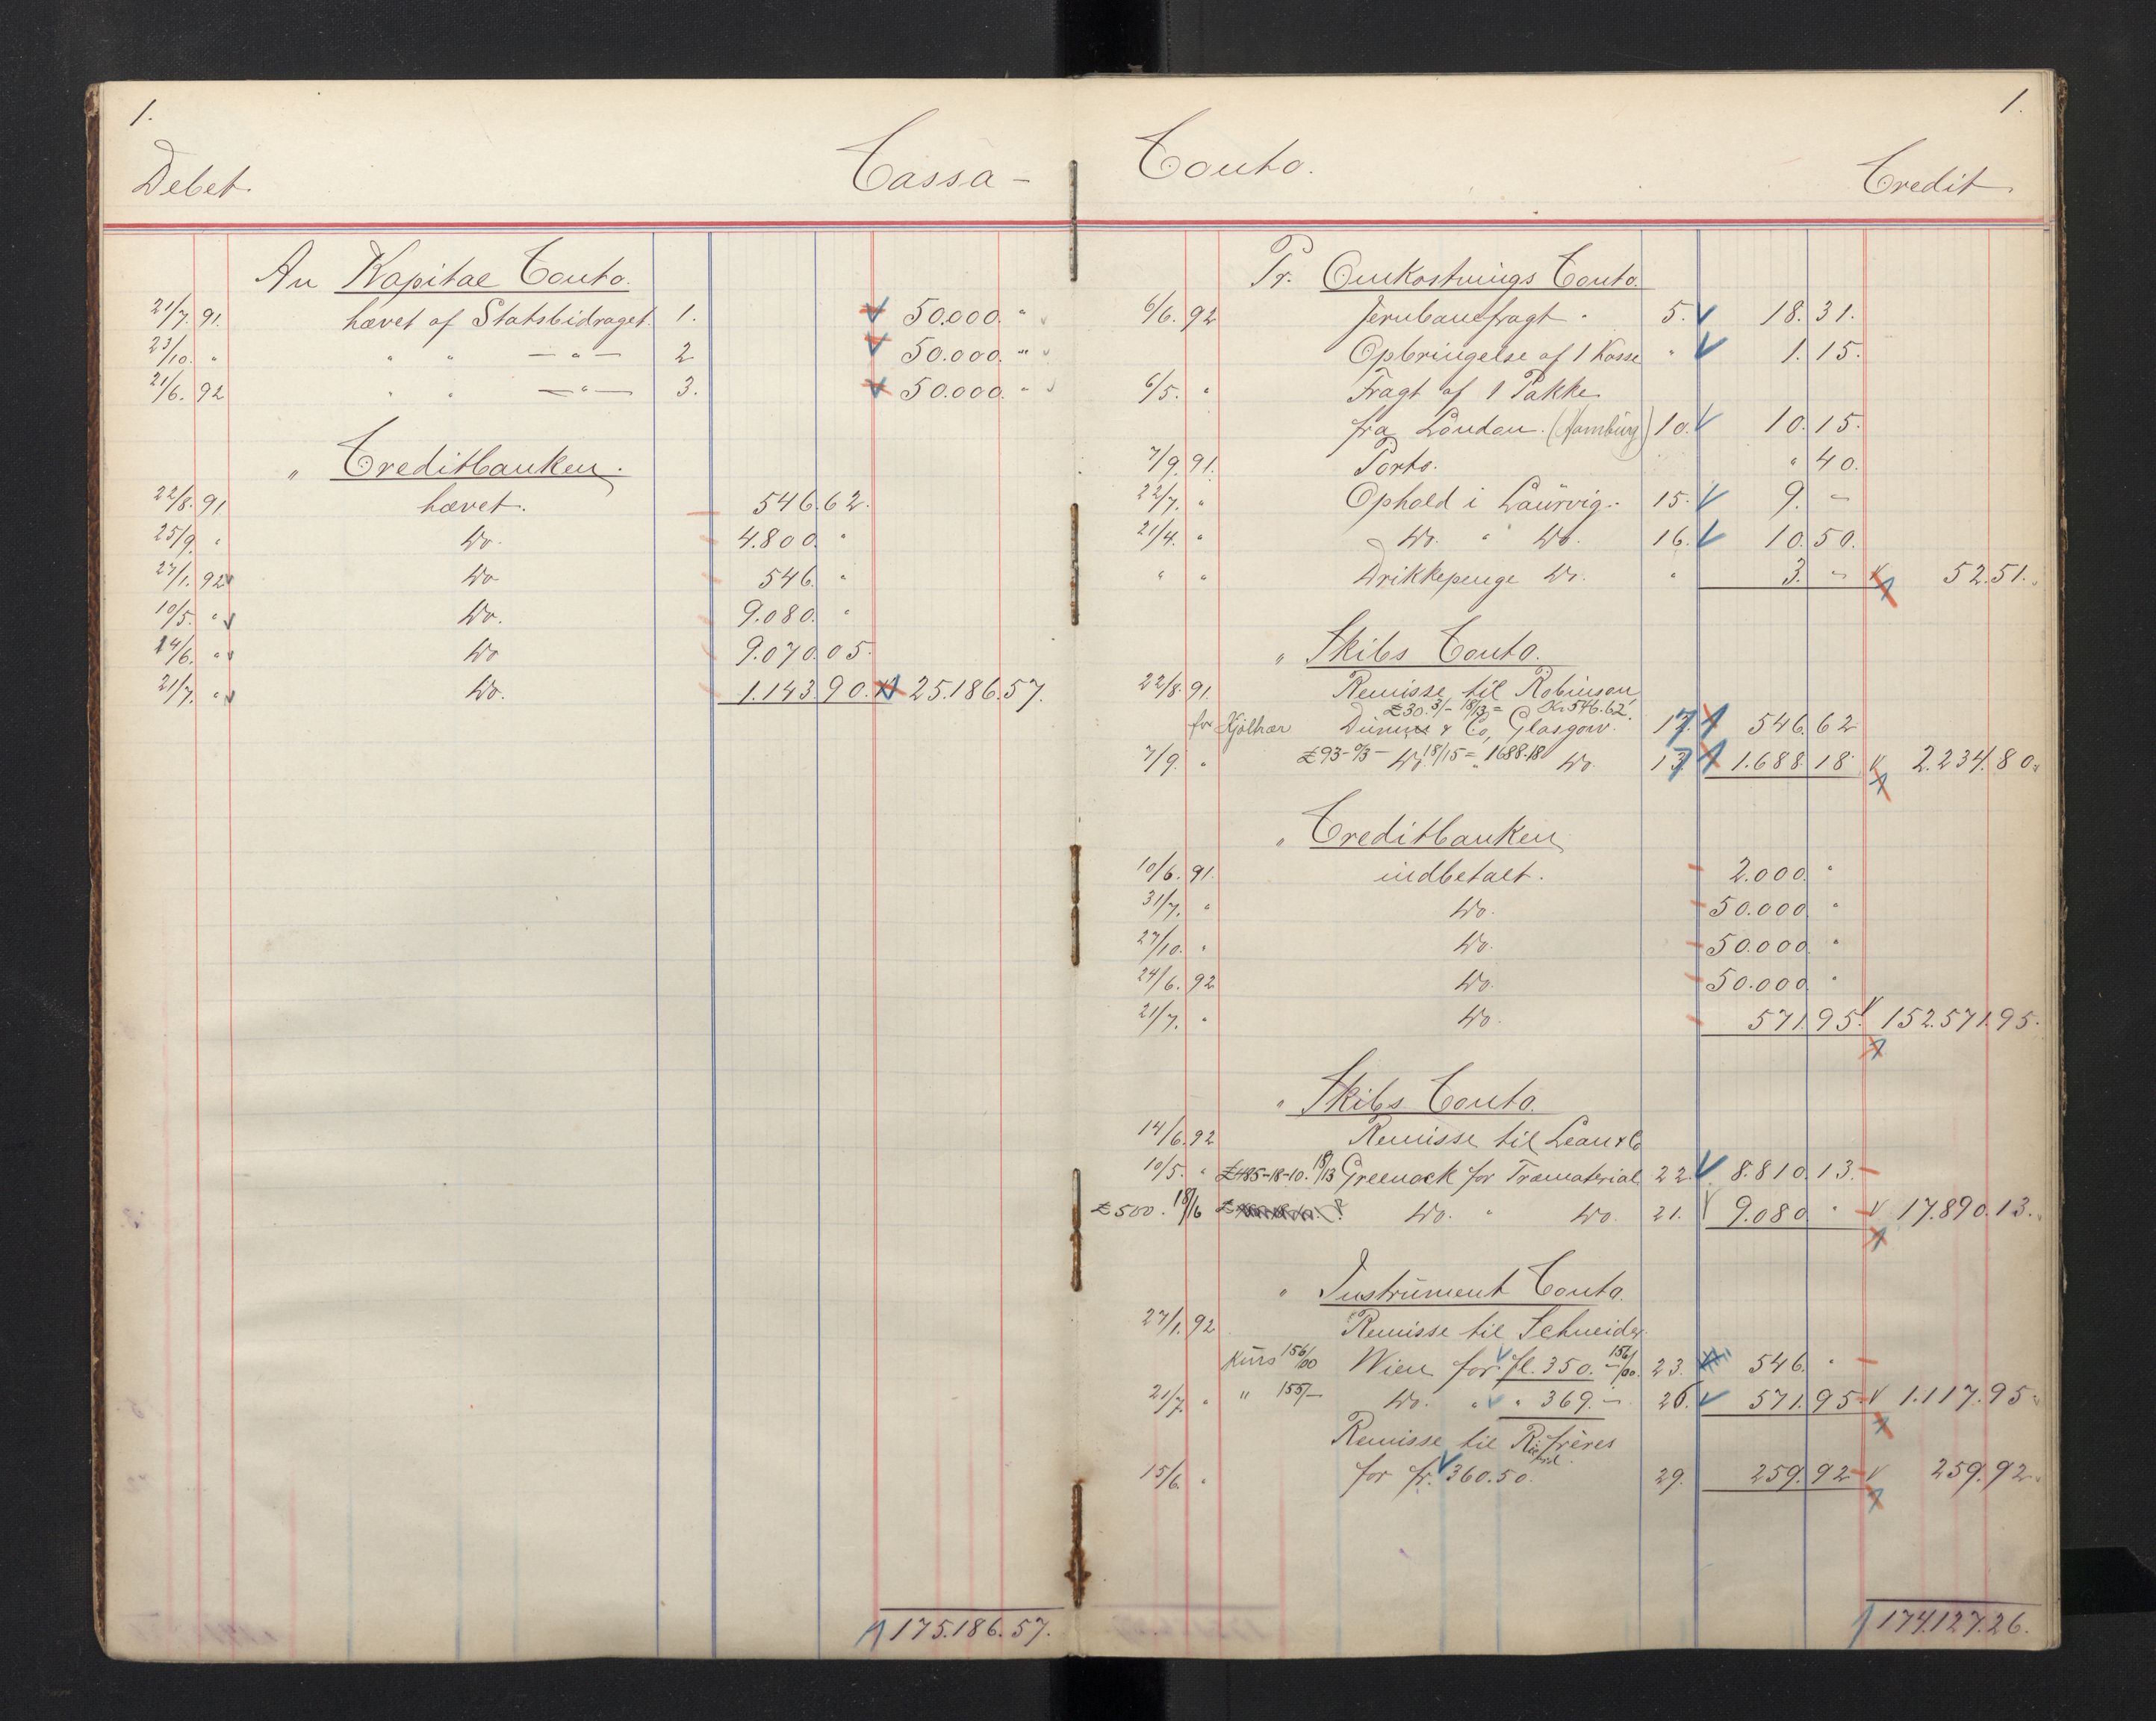 1.
Debet. Cassa-
An Kapital Conto.
21/7. 91. hævet af Statsbidraget. 1. 50.000. "
23/10. " " " — " — 2 50.000. "
21/6. 92 " " — " — 3. 50.000. "
" Creditbanken.
22/8. 91 hævet. 546.62.
25/9. " Do. 4.800. "
27/1. 92 Do 546. "
10/5. " Do. 9.080. "
14/6. " Do 9.070.05.
21/7. " Do. 1.143.90. 25.186.57.
175.186.57.
1.
Conto. Credit.
Pr. Omkostnings Conto.
6/6. 92 Jernbanefragt " 5. 18.31.
Opbringelse af 1 Kasse " 1.15.
6/5. " Fragt af 1 Pakke
fra London. (Hamburg) 10. 10.15.
7/9. 91. Porto. " 40.
22/7. " Ophold i Laurvig. 15. 9. "
21/4. " Do. " Do. 16. 10.50.
" " Drikkepenge Do. " 3. " 52.51.
" Skibs Conto.
22/8. 91. Remisse til Robinson
£30.3/- 18/13 = Kr 546.62.
for Kjølhær Dunn & Co, Glasgow. 12. 546.62
7/9. " £93-0/3- Do. 18/15 = 1688.18 " Do. 13. 1.688.18 2.234.80.
" Creditbanken
10/6. 91. indbetalt. 2.000. "
31/7. " Do. 50.000 "
27/10. " Do. 50.000 "
24/6. 92 Do. 50.000. "
21/7. " Do. 571.95. 152.571.95.
" Skibs Conto.
14/6. 92 Remisse til Lean & Co
10/5. " £485-18-10. 18/13 Greenock for Træmaterial 22. 8.810.13.
£500. 18/16 Do. " Do. 21. 9.080. " 17.890.13.
" Instrument Conto.
27/1. 92 Remisse til Schneider
Kurs 156/00 Wien for fl. 350. — 156/00. 23. 546. "
21/7. " " 155/- Do. " " 369. — 26. 571.95 1.117.95
Remisse til Richard frères
15/6. " for fr. 360.50. 29. 259.92 259.92.
174.127.26.